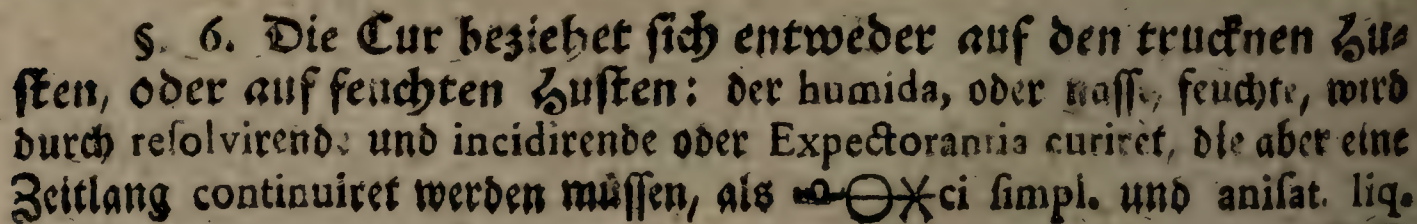 §. 6. Die Cur beziehet sich entweder auf den trucknen Hu⸗
sten, oder auf feuchten Husten: der humida, oder nasse, feuchte, wird
durch resolvirende und incidirende oder Expectorantia curiret, die aber eine
Zeitlang continuiret werden müssen, als 🜔⚹ci simpl. und anisat. liq.